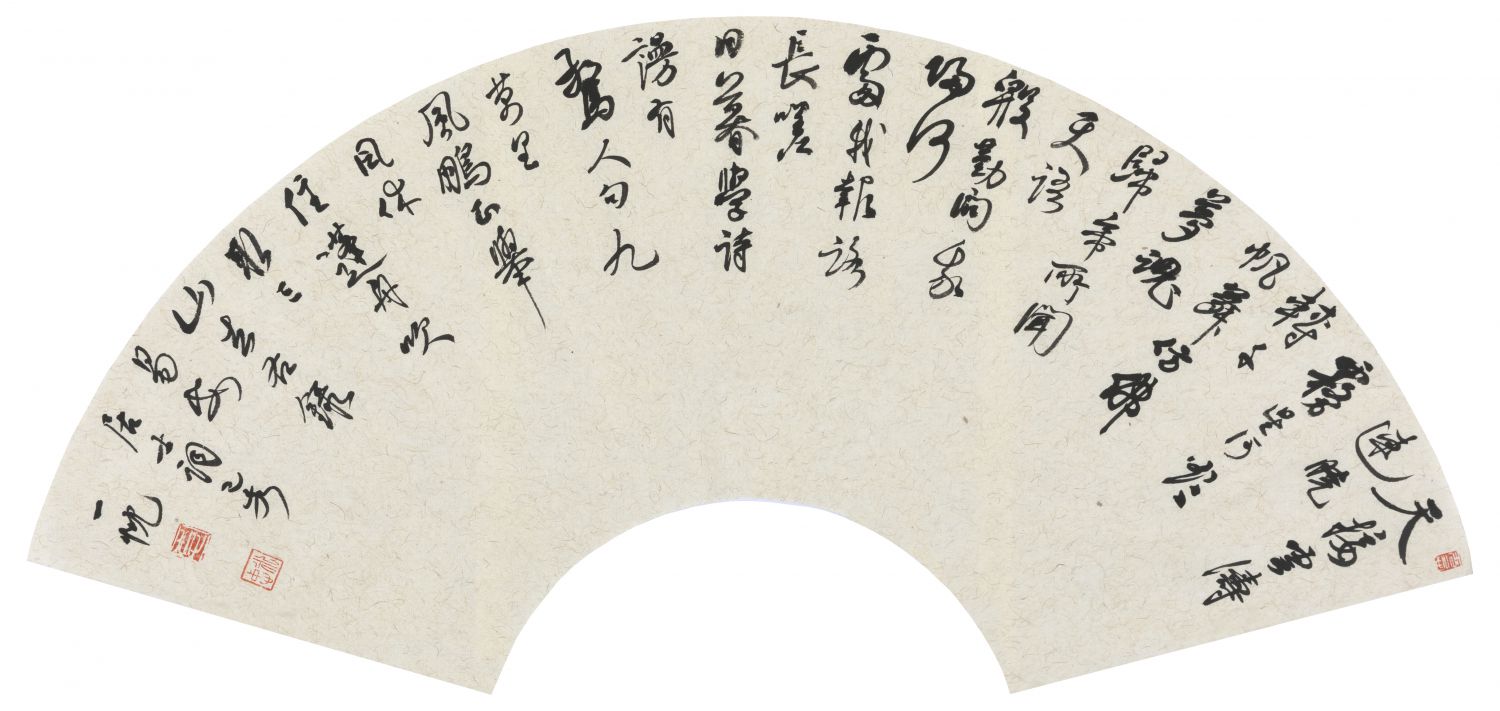 天接雲濤
連曉
霧星河欲
轉千
帆舞彷彿
夢魂
歸帝所聞
天語
殷勤問我
歸何
處我報路
長嗟
日暮學詩
謾有
驚人句九
萬里
風鵬正舉
風休
住蓬舟吹
取三
山去右錄
易安
居士詞己亥
一